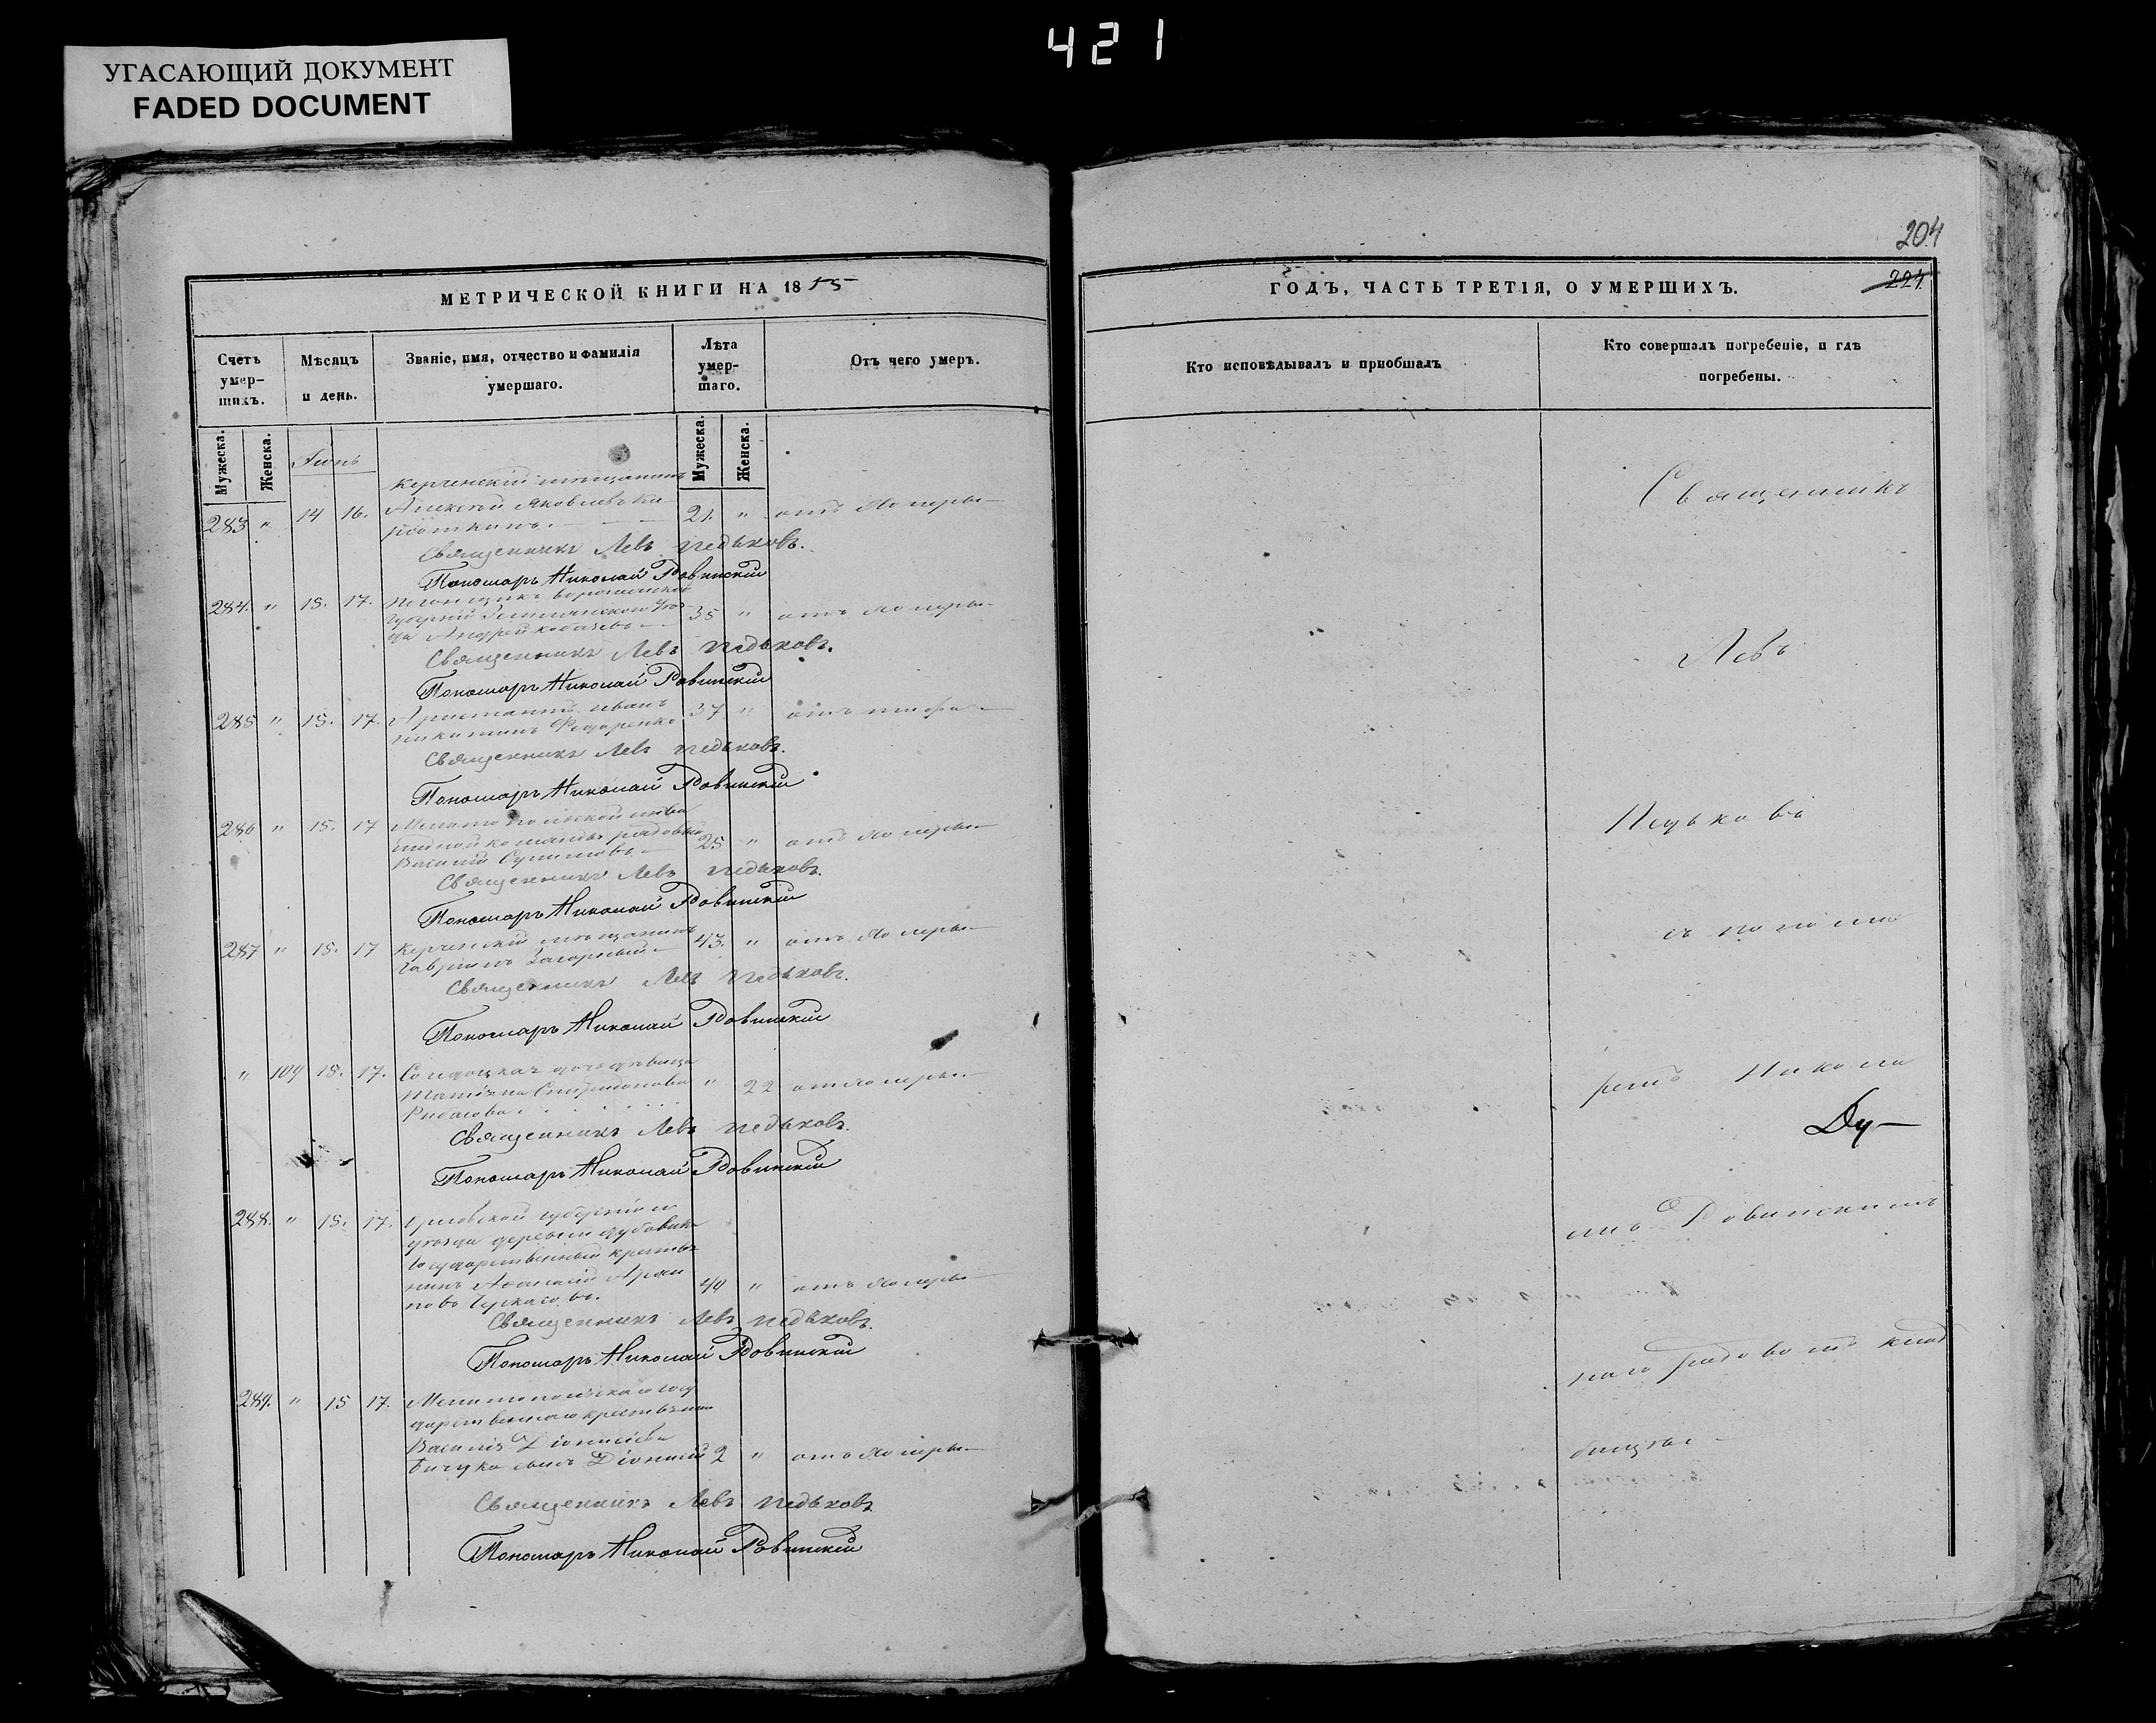 421
УГАСАЮЩИЙ ДОКУМЕНТ
FADED DOCUMENT
204
224
МЕТРИЧЕСКОЙ КНИГИ НА 1855
ГОДЪ, ЧАСТЬ ТРЕТІЯ, О УМЕРШИХЪ.
Счетъ умер-шихъ.
Мѣсяцъ и день.
Званіе, имя, отчество и фамилія умершаго.
Лѣта умер-шаго.
Отъ чего умеръ.
Кто исповѣдывалъ и пріобщалъ
Кто совершалъ погребеніе, и гдѣ погребены.
Мужеска.
Женска.
Мужеска.
Женска.
Іюнь
Керченскій мѣщанинъ
283 " 14 16. Алексѣй Яковлевъ 21. " отъ холеры
Священникъ Левъ Педьковъ.
Пономарь Николай Ровинскій
284. " 15. 17. Погонщикъ Воронежской
губерніи Землянскаго уѣз-
да Андрей 35 " отъ холеры
Священникъ Левъ Педьковъ.
Пономарь Николай Ровинскій
285 " 15. 17. Арестантъ Иванъ 37 " отъ тифа
Никитинъ Федоренко
Священникъ Левъ Педьковъ.
Пономарь Николай Ровинскій
286 " 15. 17 Мелитопольской инва
лидной команды рядовой
Василій 25 " отъ холеры
Священникъ Левъ Педьковъ.
Пономарь Николай Ровинскій
287 " 15. 17 Керченскій мѣщанинъ 43. " отъ холеры
Гавріилъ
Священникъ Левъ Педьковъ.
Пономарь Николай Ровинскій
" 109 15. 17. Солдацкая дочь дѣвица
Татіана Спиридонова " 22 отъ холеры
Священникъ Левъ Педьковъ.
Пономарь Николай Ровинскій
288. " 15. 17. Орловской губерніи и
уѣзда деревни Дубовика
Государственный крестья
нинъ 49 " отъ холеры
Черкасовъ.
Священникъ Левъ Педьковъ.
Пономарь Николай Ровинскій
289. " 15 17. Мелитопольскаго госу
дарственнаго крестьянина
Василія Діонисіева
сынъ Діонисій 2 " отъ холеры
Священникъ Левъ Педьковъ
Пономарь Николай Ровинскій
Священникъ
Левъ
Педьковъ
съ понома
ремъ Никола
Ду-
емъ Ровинскимъ
клад
бищѣ